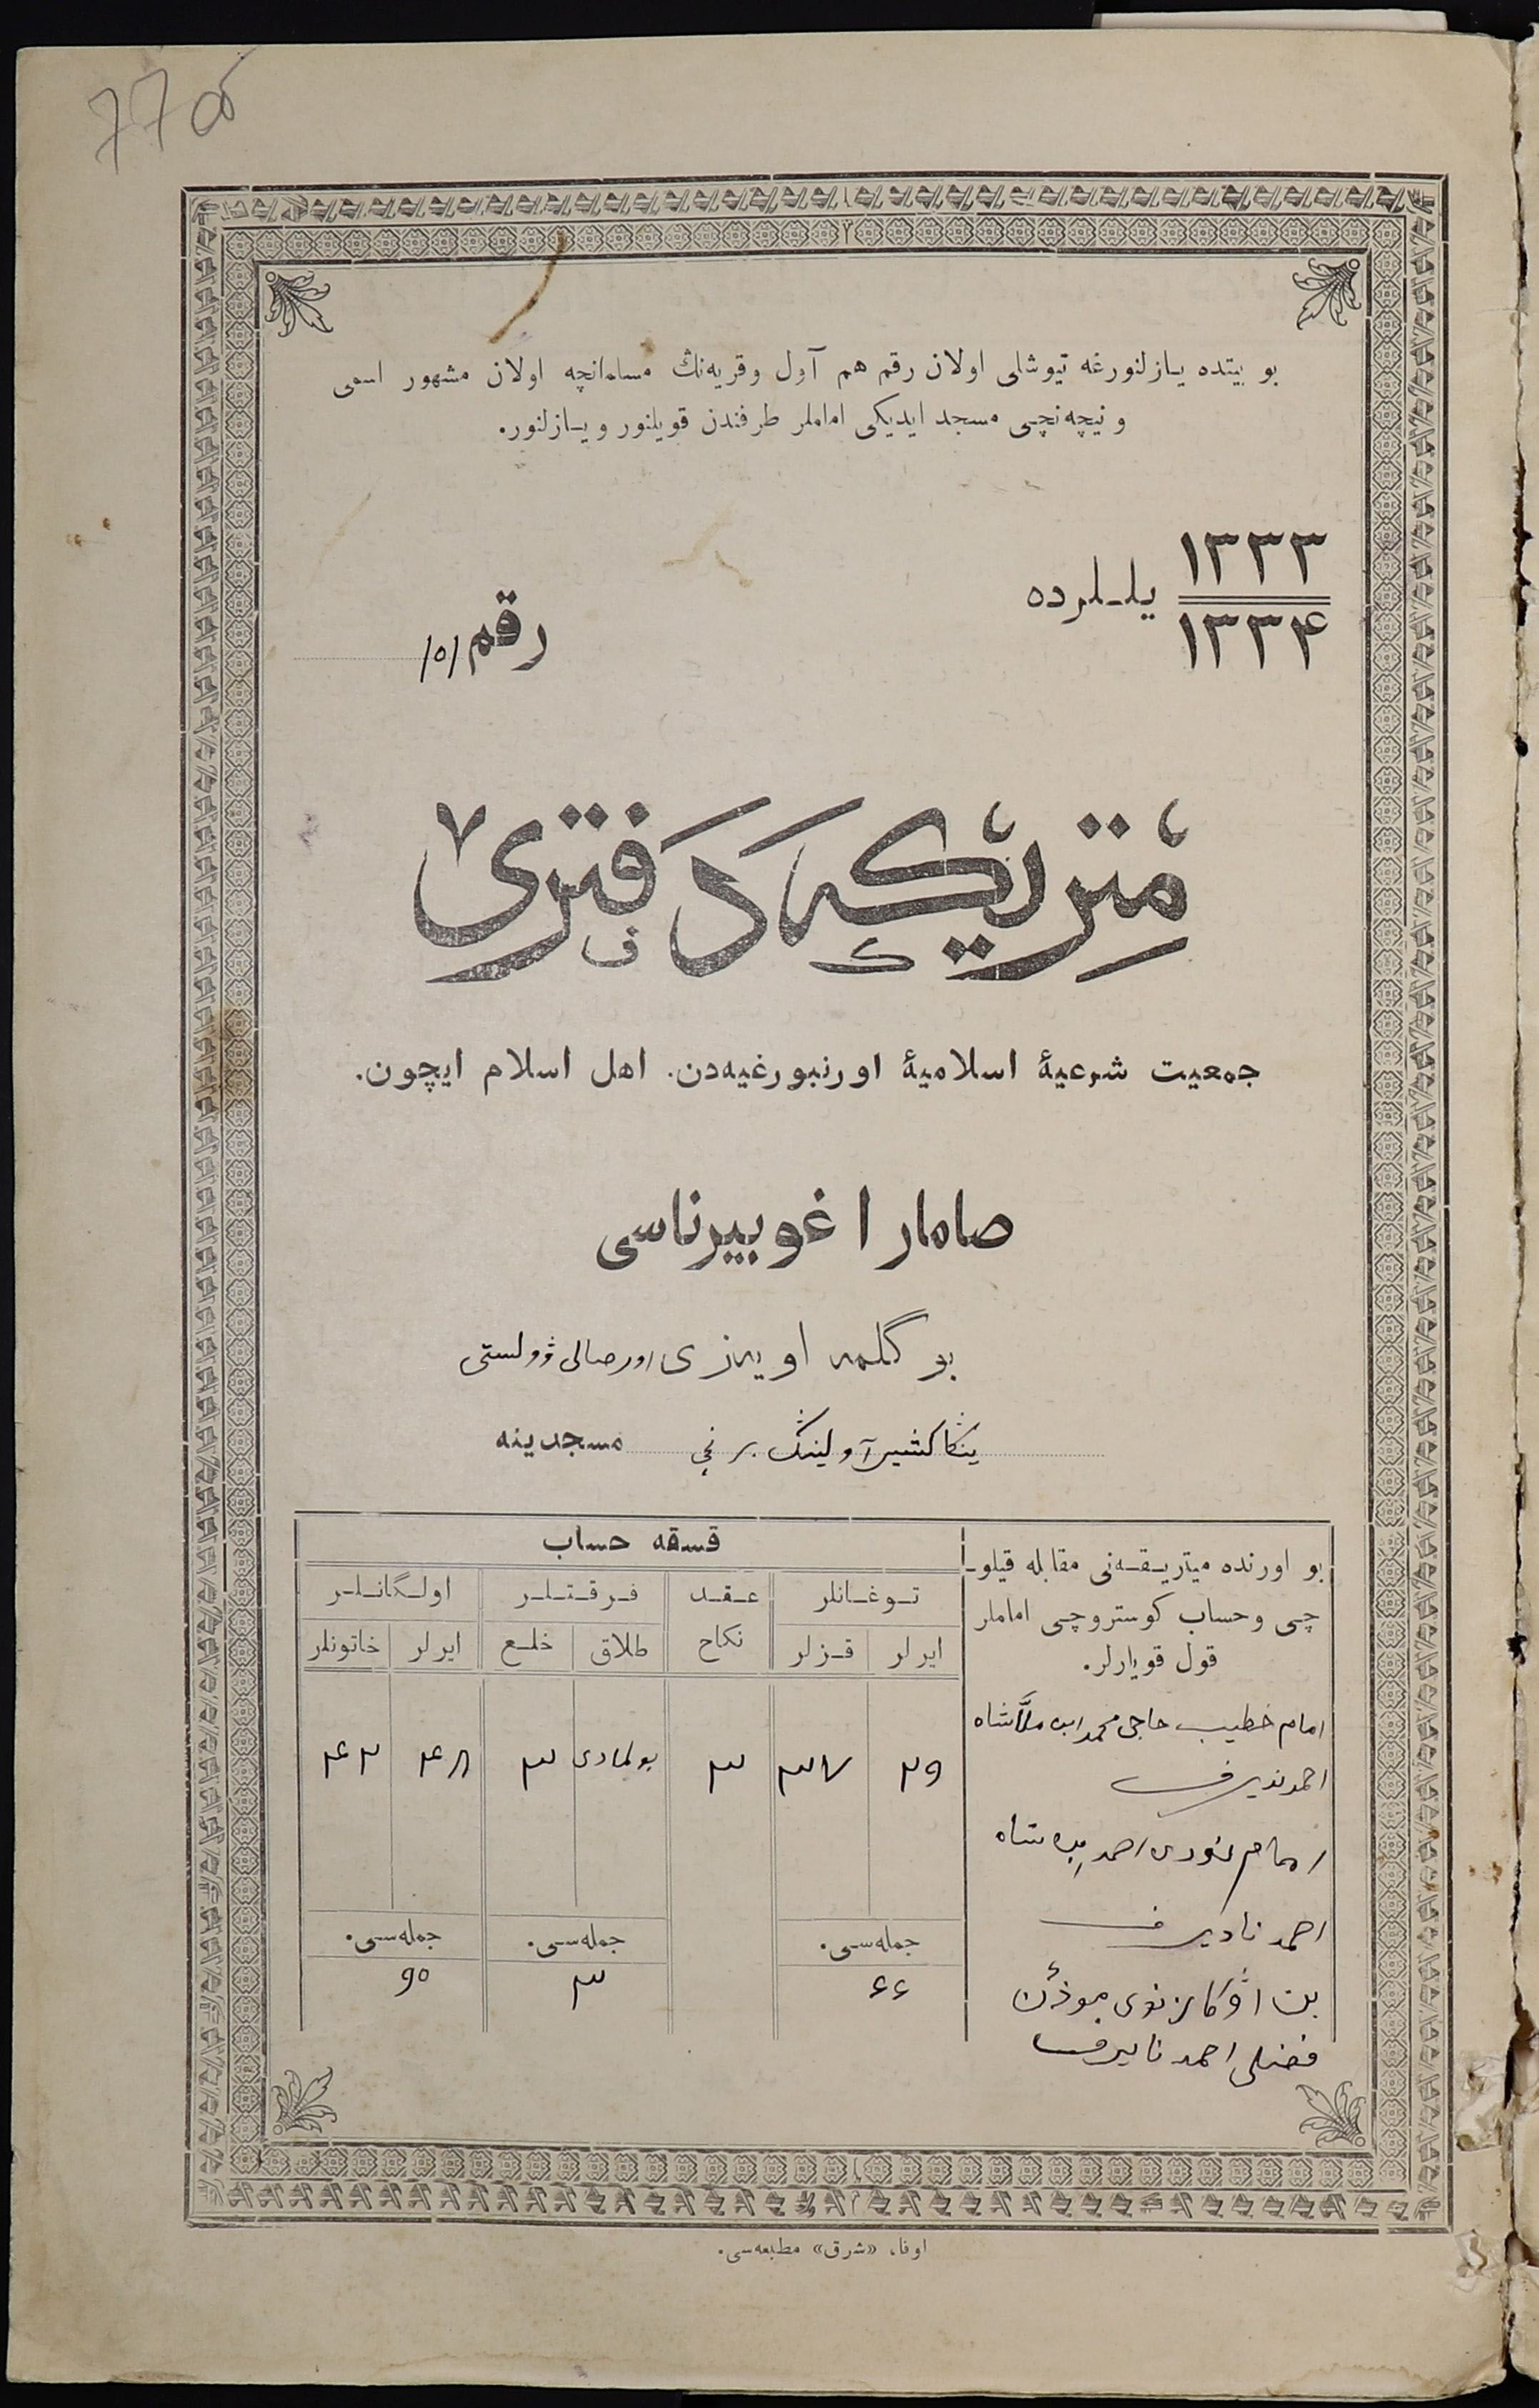 77об
بو بیتده یازلنورغه تیوشلی اولان رقم هم آول وقریه‌نڭ مسلمانچه اولان مشهور اسمی
و نیچه‌نچی مسجد ایدیکی اماملر طرفندن قویلنور و یازلنور.
۱۳۳۳
یللرده
۱۳۳۴
رقم ۱۵۱
متریکه دفتری
جمعیت شرعیهٔ اسلامیهٔ اورنبورغیه‌دن. اهل اسلام ایچون.
صامارا غوبیرناسی
بوگلمه اویه‌زی اورصالی ۋولستی
ینکا کشیر آولینڭ برنچی مسجدینه
بو اورنده میتریقه‌نی مقابله قیلو-
چی وحساب کوستروچی امامار
قول قویارلر.
امام خطیب حاجی محمد ابن ملاشاه
احمدندیرف
امام نوری احمد بن شاه
احمد نادیرف
موذن
فضلی احمد نادیرف
قسقه حساب
توغانلر
عقد
نکاح
فرقتلر
اولگانلر
ایرلر
قزلر
طلاق
خلع
ایرلر
خاتونلر
۲۹
۳۷
۳
بولمادی
۳
۴۸
۴۲
جمله‌سی.
جمله‌سی.
جمله‌سی.
۶۶
۳
۹۰
اوفا، «شرق» مطبعه‌سی.